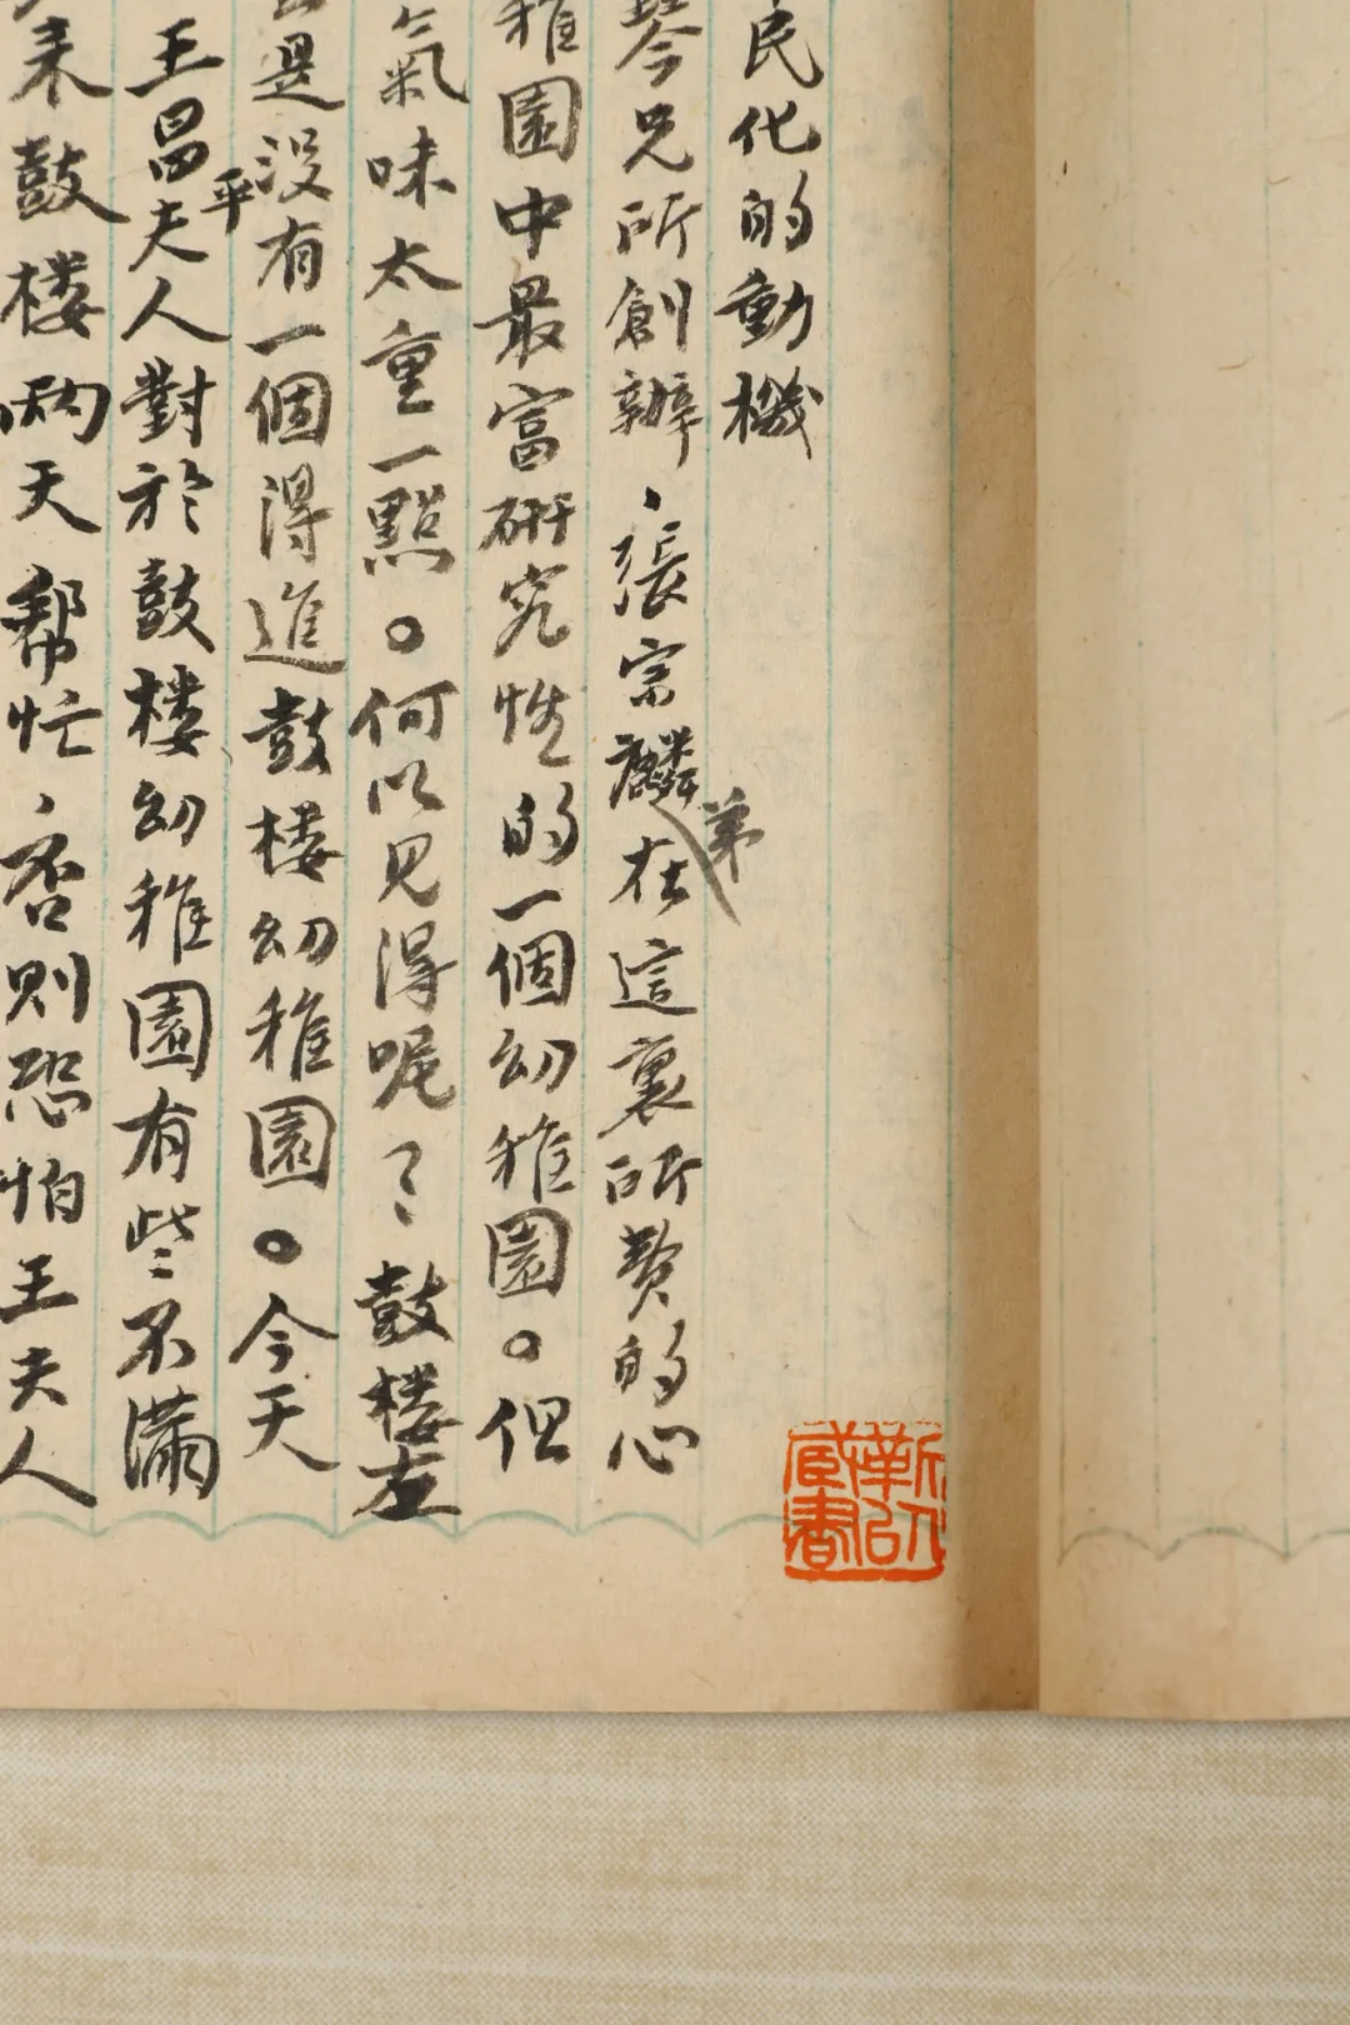 民化的動機
琴兄所創辦、張宗麟弟在這裏所費的心
稚園中最富研究性的一個幼稚園。但
氣味太重一點。何以見得呢？鼓樓左
是没有一個得進鼓樓幼稚園。今天
王昌平夫人對於鼓樓幼稚園有些不滿
来鼓樓兩天幫忙、否則恐怕王夫人
藏書